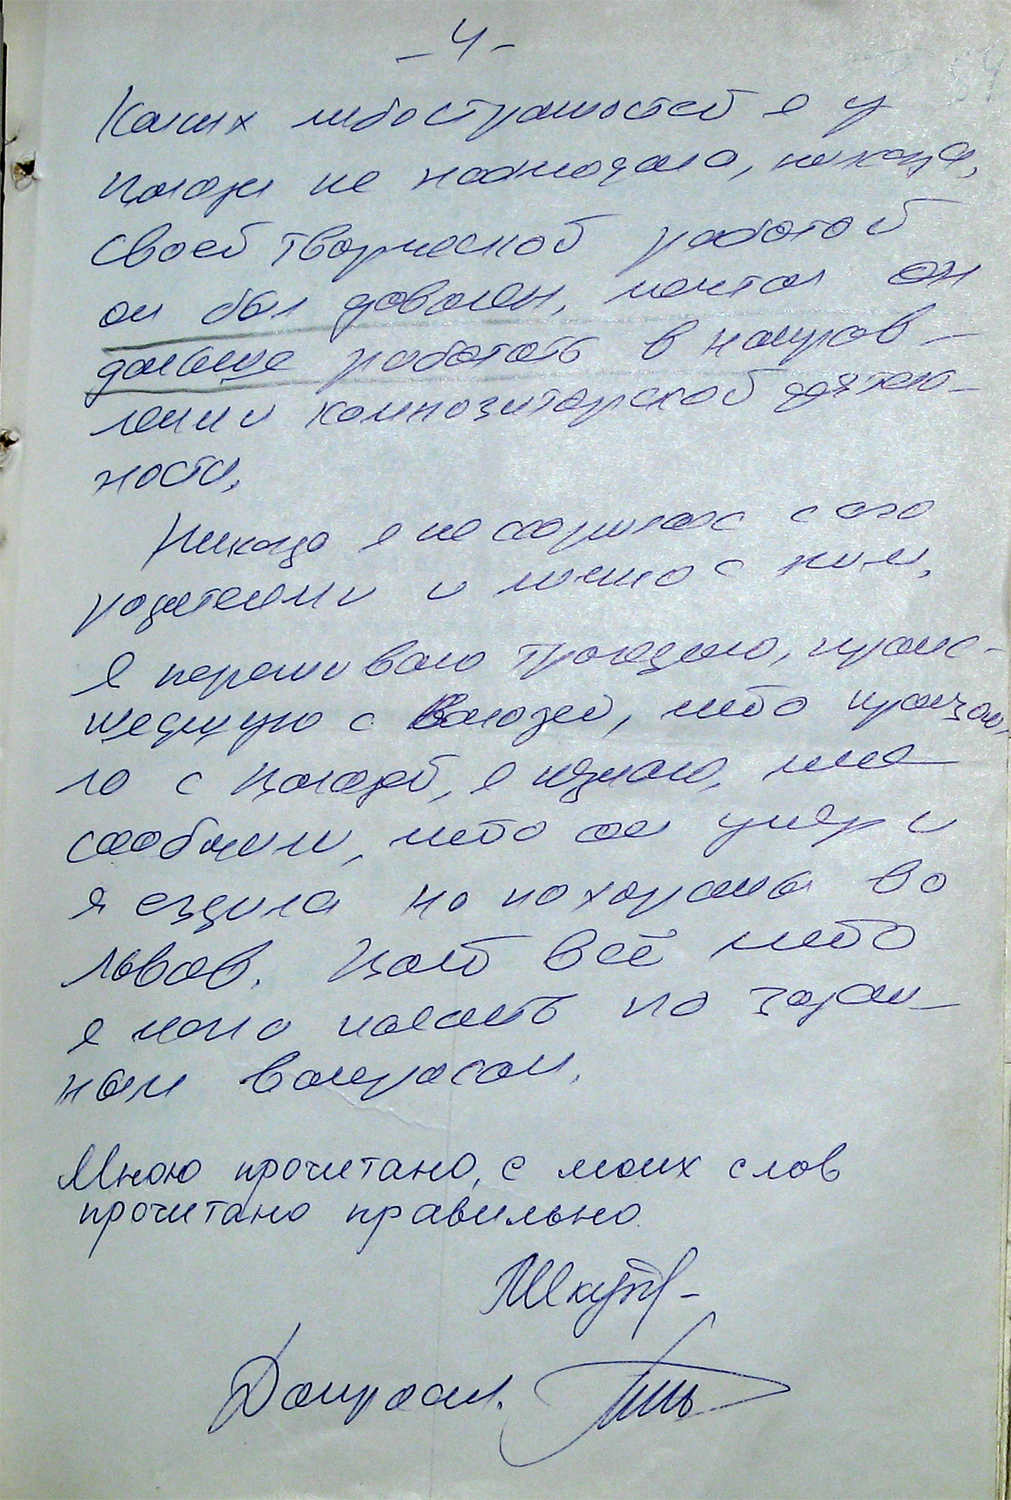 - 4 -
Каких либо странностей я у
Володи не наблюдала, никогда,
своей творческой работой
он был доволен, мечтал он
дальше работать в направ-
лении композиторской деятель-
ности.
Никогда я не ссорилась с его
родителями и лично с ним.
Я переживаю трагедию, проис-
шедшую с Володей, что произош-
ло с Володей, я узнала, мне
сообщили, что он умер и
я ездила на похороны во
Львов. Вот всё что
я могу показать по задан-
ным вопросам.
Мною прочитано, с моих слов
прочитано правильно.
Допросил.